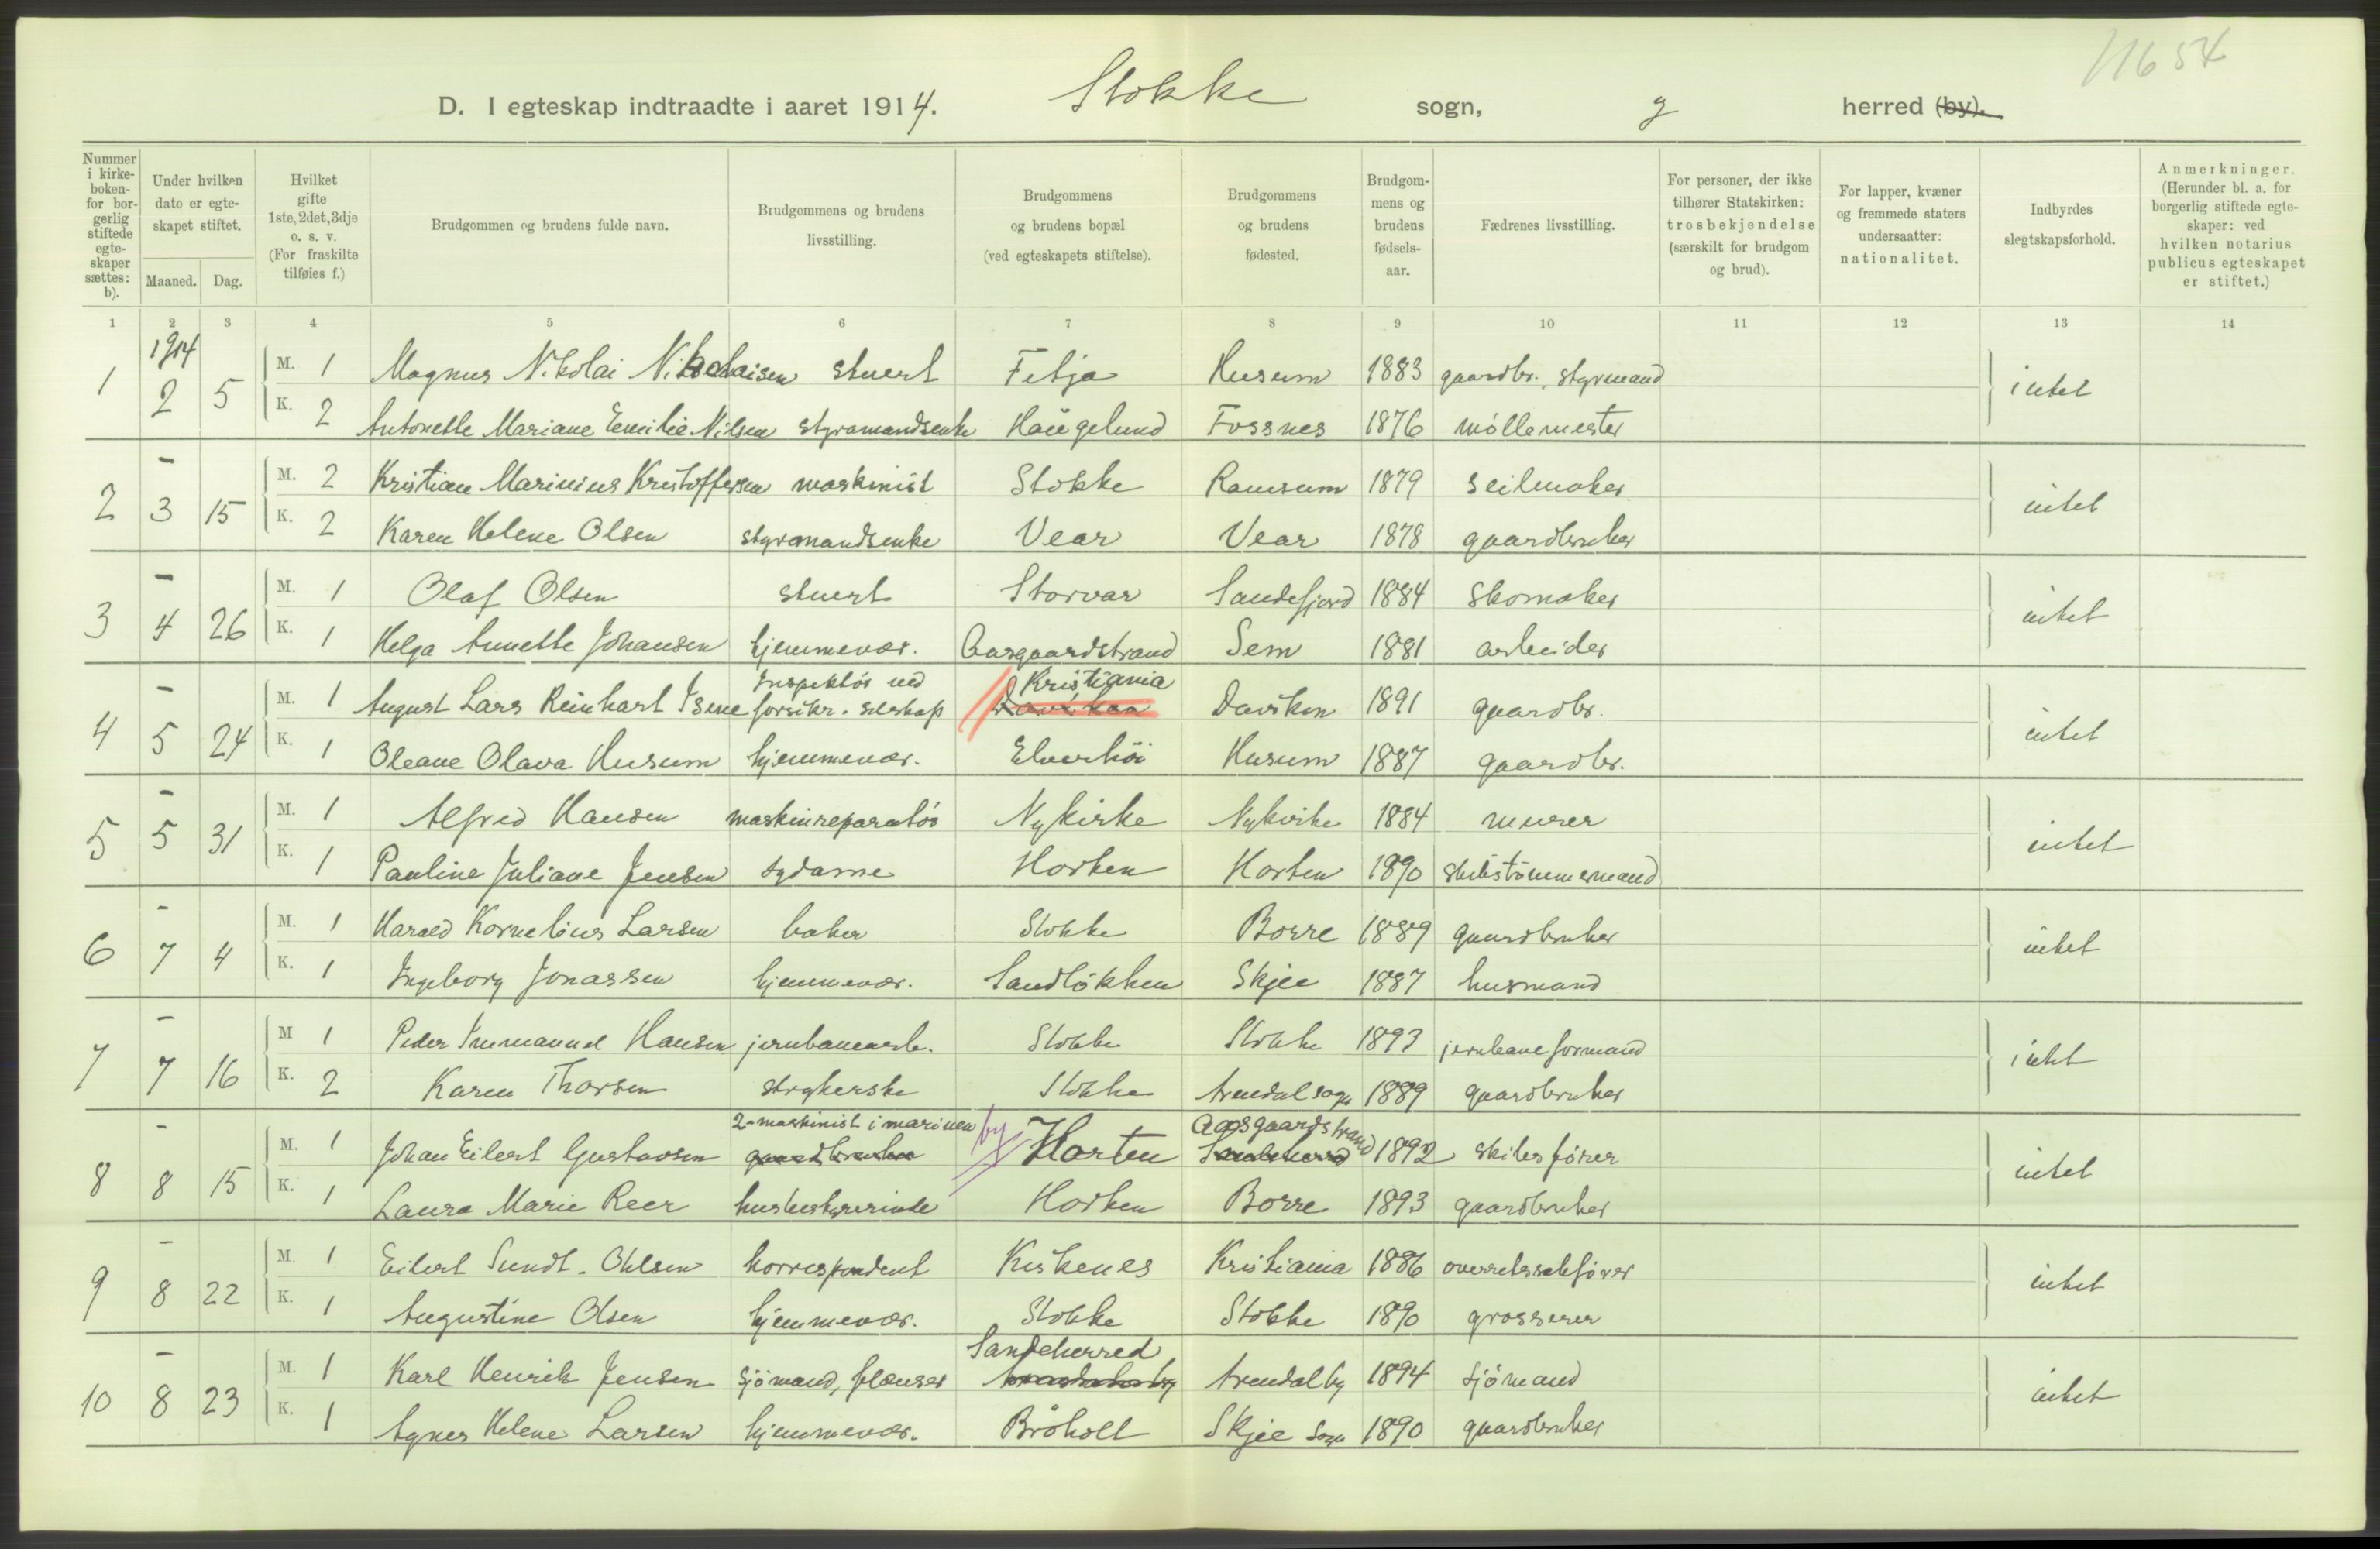 11654
D. I egteskap indtraadte i aaret 1914. Stokke sogn, g herred (by).
Nummer i kirke-boken- for bor-gerlig stiftede egte-skaper sættes: b).
Under hvilken dato er egte-skapet stiftet.
Maaned. Dag.
Hvilket gifte 1ste, 2det, 3dje o. s. v. (For fraskilte tilføies f.)
Brudgommen og brudens fulde navn.
Brudgommens og brudens livsstilling.
Brudgommens og brudens bopæl (ved egteskapets stiftelse).
Brudgommens og brudens fødested.
Brudgom-mens og brudens fødsels-aar.
Fædrenes livsstilling.
For personer, der ikke tilhører Statskirken: trosbekjendelse (særskilt for brudgom og brud).
For lapper, kvæner og fremmede staters undersaatter: nationalitet.
Indbyrdes slegtskapsforhold.
Anmerkninger. (Herunder bl. a. for borgerlig stiftede egte-skaper: ved hvilken notarius publicus egteskapet er stiftet.)
1 2 3 4 5 6 7 8 9 10 11 12 13 14
1914
1 2 5 M. 1 Magnus Nikolai Nikolaisen stuert Fetja Husum 1883 gaardbr., styrmand intet
K. 2 Antonette Mariane Emilie Nilsen styrmandsenke Haugelund Fossnes 1876 møllemester
2 - 3 15 M. 2 Kristian Marinius Kristoffersen maskinist Stokke Ramsum 1879 seilmaker intet
K. 2 Karen Helene Olsen styrmandsenke Vear Vear 1878 gaardbruker
3 - 4 26 M. 1 Olaf Olsen stuert Storvar Sandefjord 1884 skomaker intet
K. 1 Helga Annette Johansen hjemmevær. Aasgaardstrand Sem 1881 arbeider
4 - 5 24 M. 1 August Lars Reinhart Isene Inspektør ved forsikr. selskap Kristiania Daviken 1891 gaardbr. intet
K. 1 Oleane Olava Husum hjemmevær. Elverhöi Husum 1887 gaardbr.
5 - 5 31 M. 1 Alfred Hansen maskinreparatör Nykirke Nykirke 1884 murer intet
K. 1 Pauline Juliane Jensen sydame Horten Horten 1890 skibstömmermand
6 - 7 4 M. 1 Harald Kornelius Larsen baker Stokke Borre 1889 gaardbruker intet
K. 1 Ingeborg Jonassen hjemmevær. Sandlökken Skjee 1887 husmand
7 - 7 16 M 1 Peder Immanuel Hansen jernbanearb. Stokke Stokke 1893 jernbaneformand intet
K. 2 Karen Thorsen strykerske Stokke Arendal sogn 1889 gaardbruker
8 - 8 15 M. 1 Johan Eilert Gustavsen 2-maskinist i marinen gaardbruker by Horten Aasgaardstrand Sandeherred 1892 skibsfører intet
K. 1 Laura Marie Reer husbestyrerinde Horten Borre 1893 gaardbruker
9 - 8 22 M. 1 Eilert Sundt-Ohlsen korrespondent Kirkenes Kristiania 1886 overretssakfører intet
K. 1 Augustine Olsen hjemmevær. Stokke Stokke 1890 grosserer
10 - 8 23 M. 1 Karl Henrik Jensen sjömand, flænser Sandeherred Arendal by 1894 sjömand intet
K. 1 Agnes Helene Larsen hjemmevær. Bröholt Skjee sogn 1890 gaardbruker